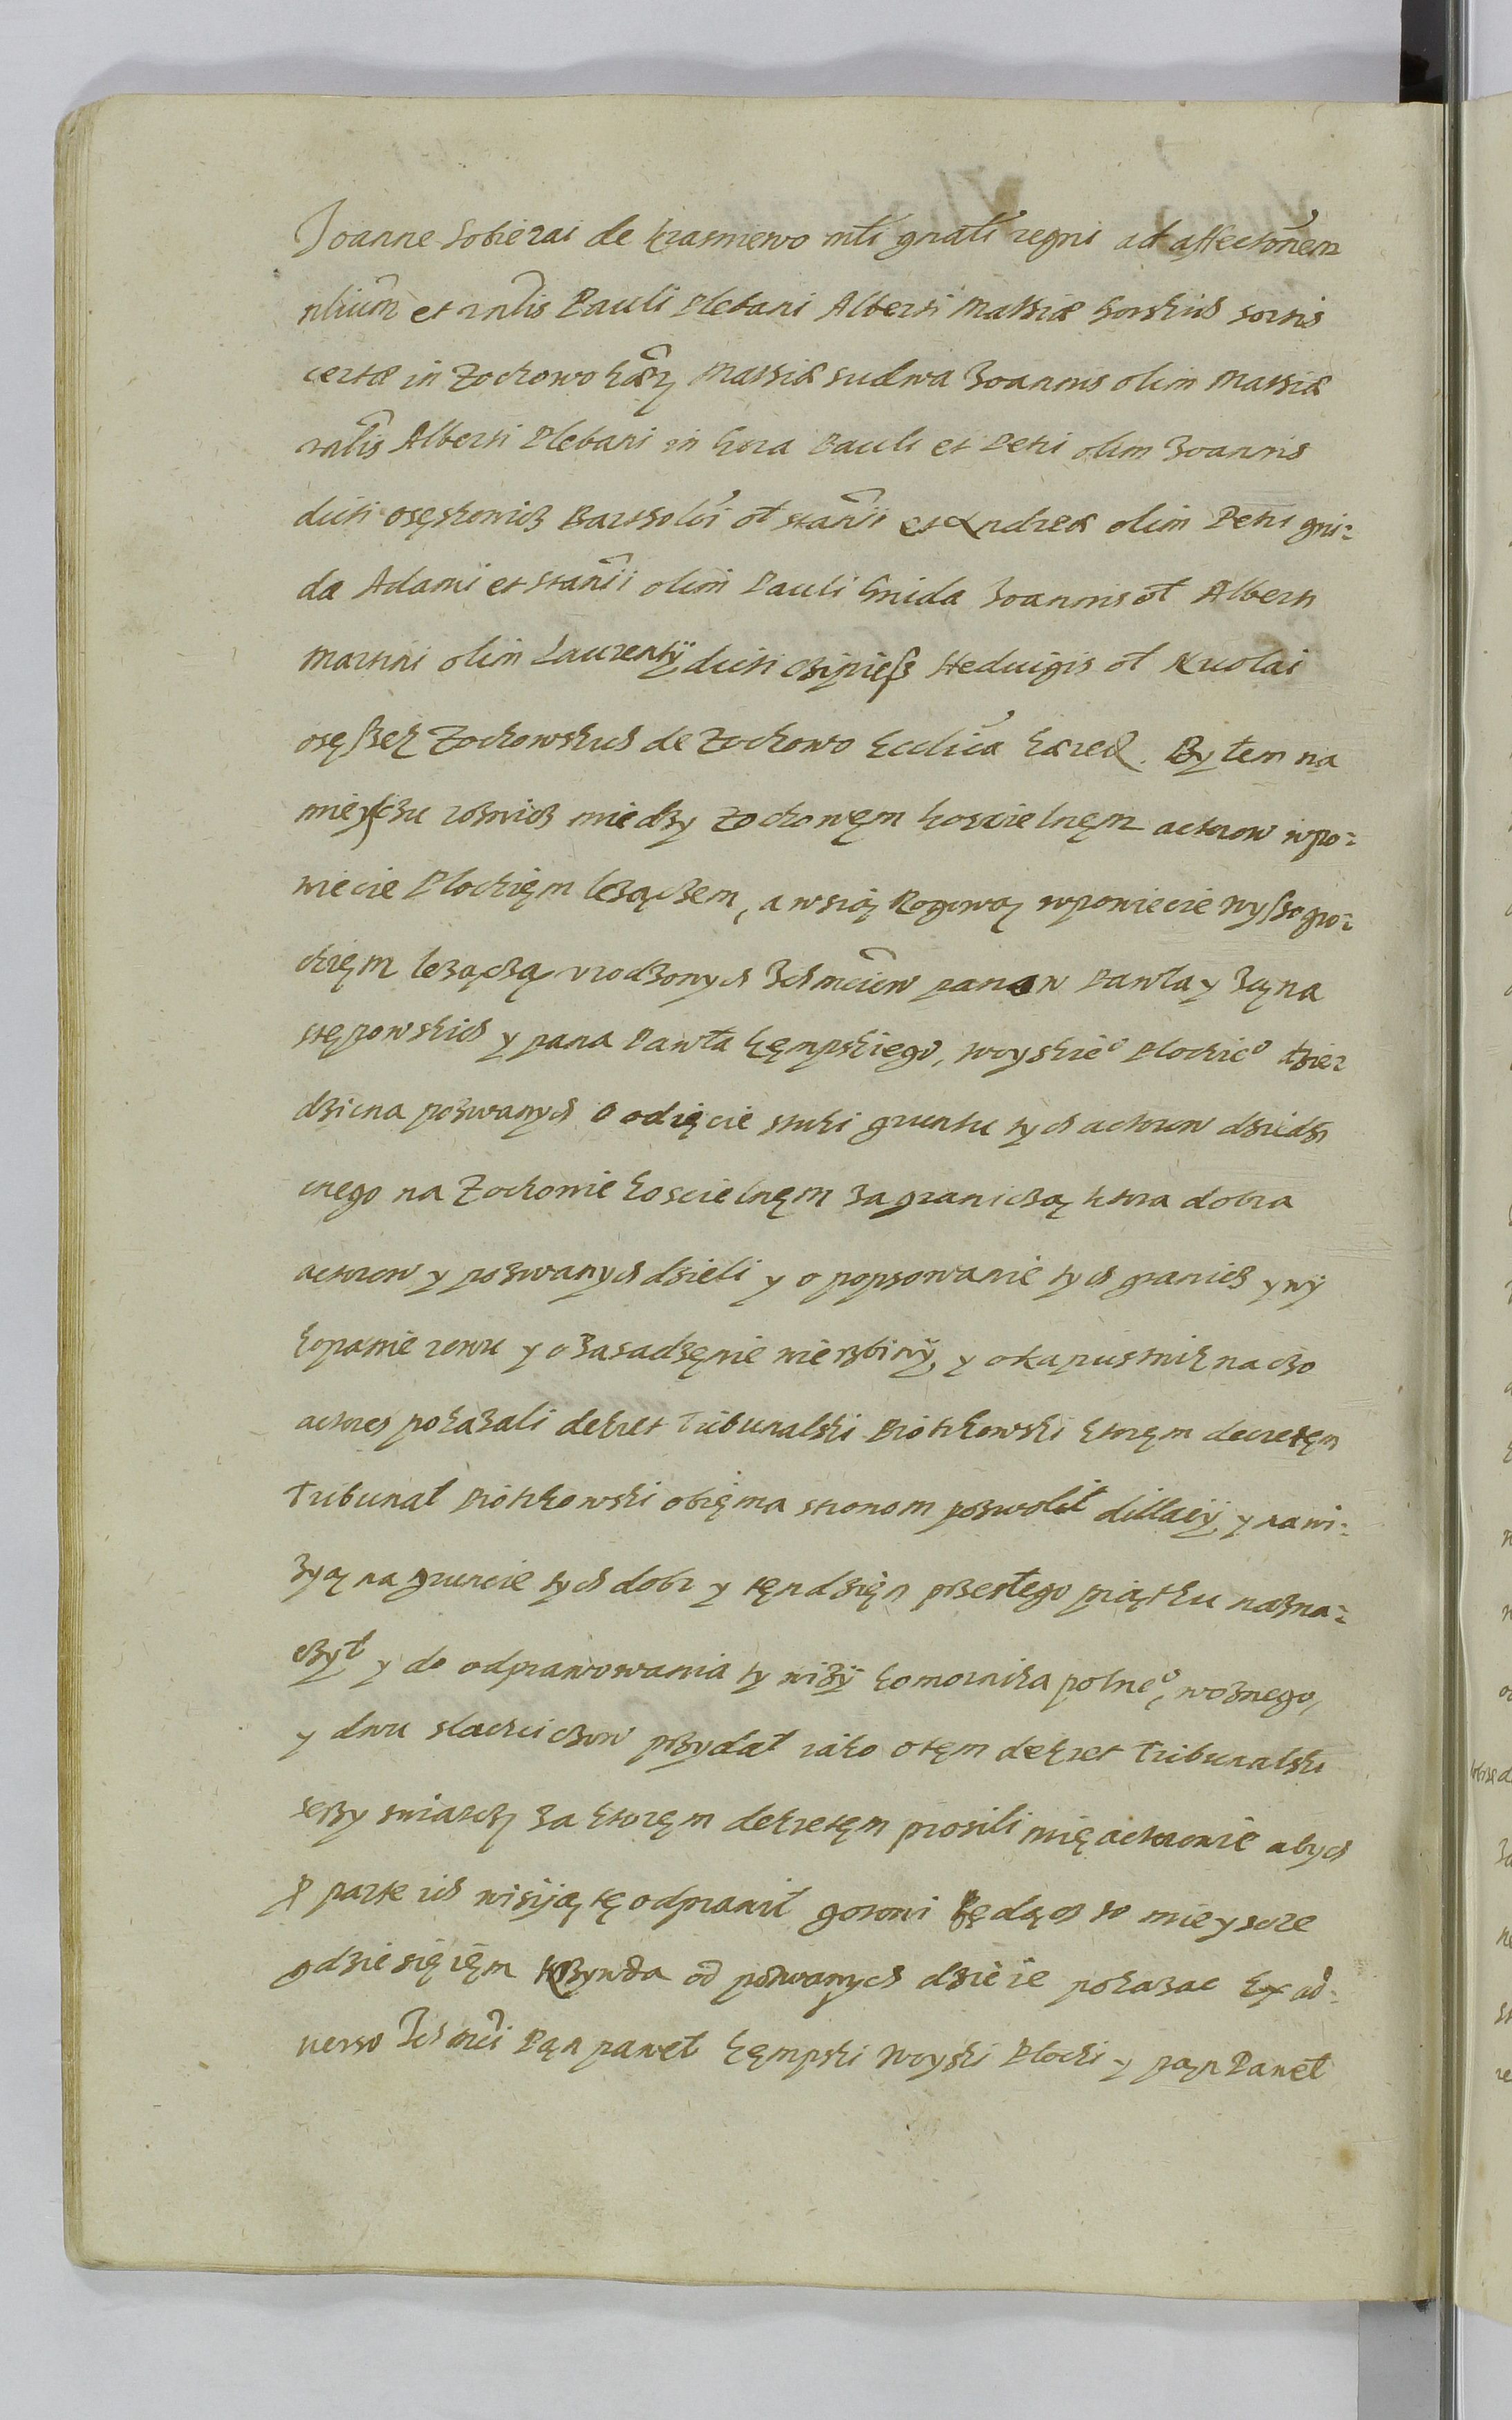 Joanne Sobierai de Krasniewo mtri gnali regni ad affectonem
nbium et rnlis Pauli Plebani Alberti Mathiæ Gorskich sortis
certæ in Zochowo hær Mathiæ Sudwa Joannis olim Mathiæ
rnlis Alberti Plebani in Gora Pauli et Petri olim Joannis
dicti osęskowicz Bartholoi ol Stanii et Andreæ olim Petri gni-
da Adami et Stanii olim Pauli Gnida Joannis ol Alberti
Martini olim Laurentÿ dicti Heduigis ol Nicolai
osęszek Zochowskich de Zochowo Ecclica hæred. Był em na
mieysczu roznicz miedzy Zochowęm koscielnęm actorow wpo-
wiecie Plockięm lezączem, a wsią Rogową wpowiecie Wyszogro-
dzkięm lezączą vrodzonych Ich mciow panow Pawła y Jana
stępowskich y pana Pawła kęmpskiego, woyskieo Plockieo dzie-
dzicna pozwanych o odięcie sztuki gruntu tych actorow dziedzi
cnego na Zochowie koscielnęm za graniczą ktora dobra
actorow y pozwanych dzieli y o popsowanie tych granicz y wÿ
kopanie rowu y o zasadzęnie wierzbinÿ, y o kapustnik na czo
actores pokazali dekret Tribunalski Piotrkowski ktoręm decretęm
Tribunał Piotrkowski obięma stronom pozwolił dillacÿ y na wi-
zyą na gruncie tych dobr y tęn dzięn przesłego piątku nazna-
czył y do odprawowania ty wizÿ komornika polneo, woznego,
y dwu slachciczow przydał iako o tęm dekret Tribunalski
serzy swiatczy za ktoręm dekretęm prosili mię actorowie abych
p parte ich wisiją tę odprawił gotowi będącz to mieyscze
gdzie się ięm krzywda od pozwanych dzieie pokazac Ex ad-
uerso Ich mci Pan paweł kęmpski Woyski Plocki y pan Paweł